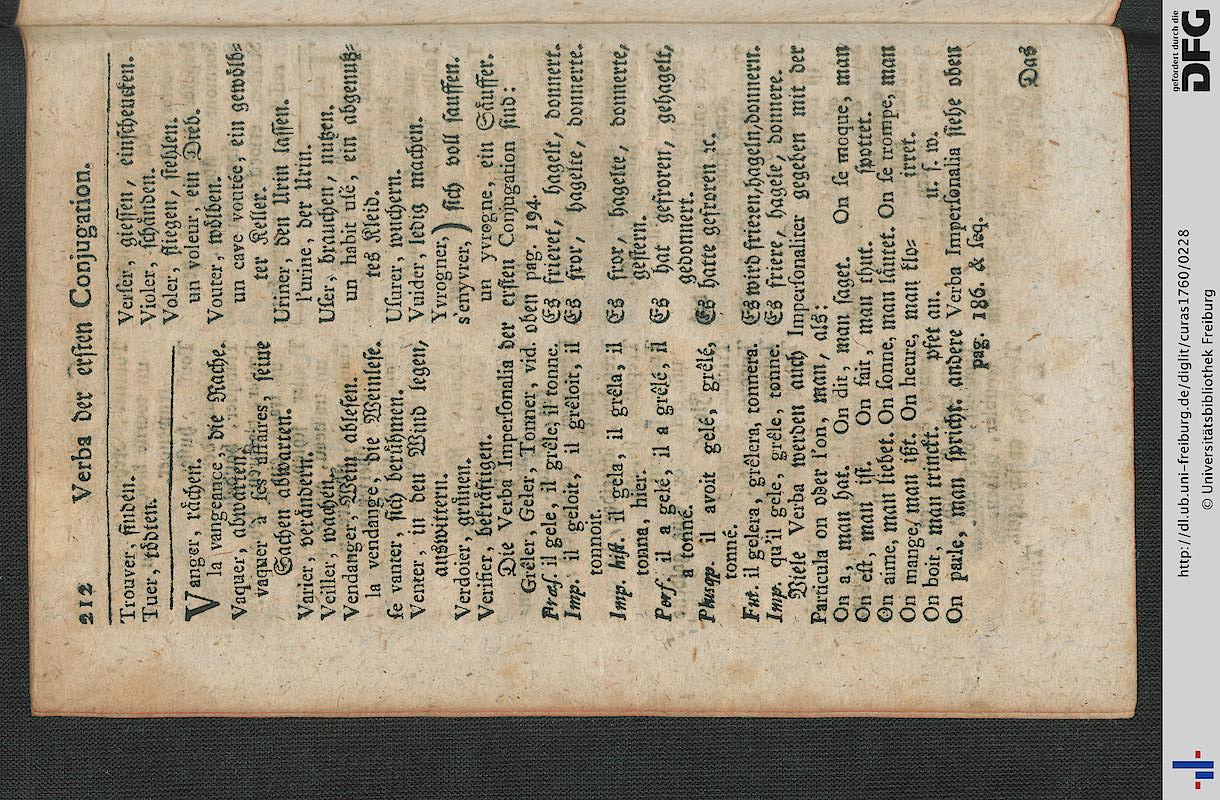 212 Verba der ersten Conjugation.
Trouver, finden.
Tuer, tödten.
Vanger, rächen.
la vangeance, die Rache.
Vaquer, abwarten.
vaquer à ses affaires, seine
Sachen abwarten.
Varier, verändern.
Veiller, wachen.
Vendanger, Wein ablesen.
la vendange, die Weinlese.
se vanter, sich berühmen.
Venter, in den Wind legen,
auswittern.
Verdoier, grünen.
Verifier, bekräftigen.
Verser, giessen, einschencken.
Violer, schänden.
Voler, fliegen, stehlen.
un voleur, ein Dieb.
Vouter, wölben.
un cave voutée, ein gewölb-
ter Keller.
Uriner, den Urin lassen.
l'urine, der Urin.
User, brauchen, nutzen.
un habit usé, ein abgenutz-
tes Kleid.
Usurer, wuchern.
Vuider, ledig machen.
Yvrogner,
s'enyvrer, ) sich voll sauffen.
un yvrogne, ein Säuffer.
Die Verba Impersonalia der ersten Conjugation sind:
Grêler, Geler, Tonner, vid. oben pag. 194.
Præs. il gele, il grêle, il tonne. Es frieret, hagelt, donnert.
Imp. il geloit, il gréloit, il Es fror, hagelte, donnerte.
tonnoit.
Imp. hist. il gela, il grêla, il Es fror, hagelte, donnerte,
tonna, hier. gestern.
Perf. il a gelé, il a grêlé, il Es hat gefroren, gehagelt,
a tonné. gedonnert.
Plusqp. il avoit gelé, grêlé, Es hatte gefroren ꝛc.
tonné.
Fut. il gelera, grêlera, tonnera. Es wird frieren, hageln, donnern.
Imp. qu'il gele, grêle, tonne. Es friere, hagele, donnere.
Viele Verba werden auch Impersonaliter gegeben mit der
Particula on oder l'on, man, als:
On a, man hat. On dit, man saget. On se moque, man
On est, man ist. On fait, man thut. spottet.
On aime, man liebet. On sonne, man läutet. On se trompe, man
On mange, man ißt. On heure, man klo- irret.
On boit, man trinckt. pfet an. u. s. w.
On parle, man spricht. andere Verba Impersonalia siehe oben
pag. 186. & seq.
Das
gefördert durch die
DFG
http://dl.ub.uni-freiburg.de/diglit/curas1760/0228
© Universitätsbibliothek Freiburg